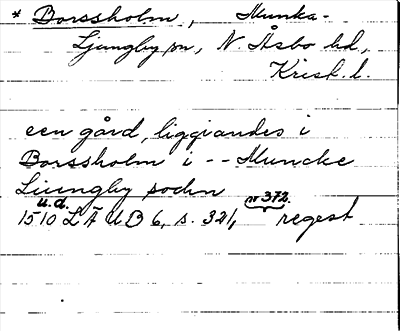 * Borssholm, Munka-
Ljungby sn, N. Åsbo hd,
Krist. l.
een gård, liggiandes i
Borssholm i -- Muncke
Liungby sockn
u.d.
1510 LÄUB 6, s. 321, nr 372. regest